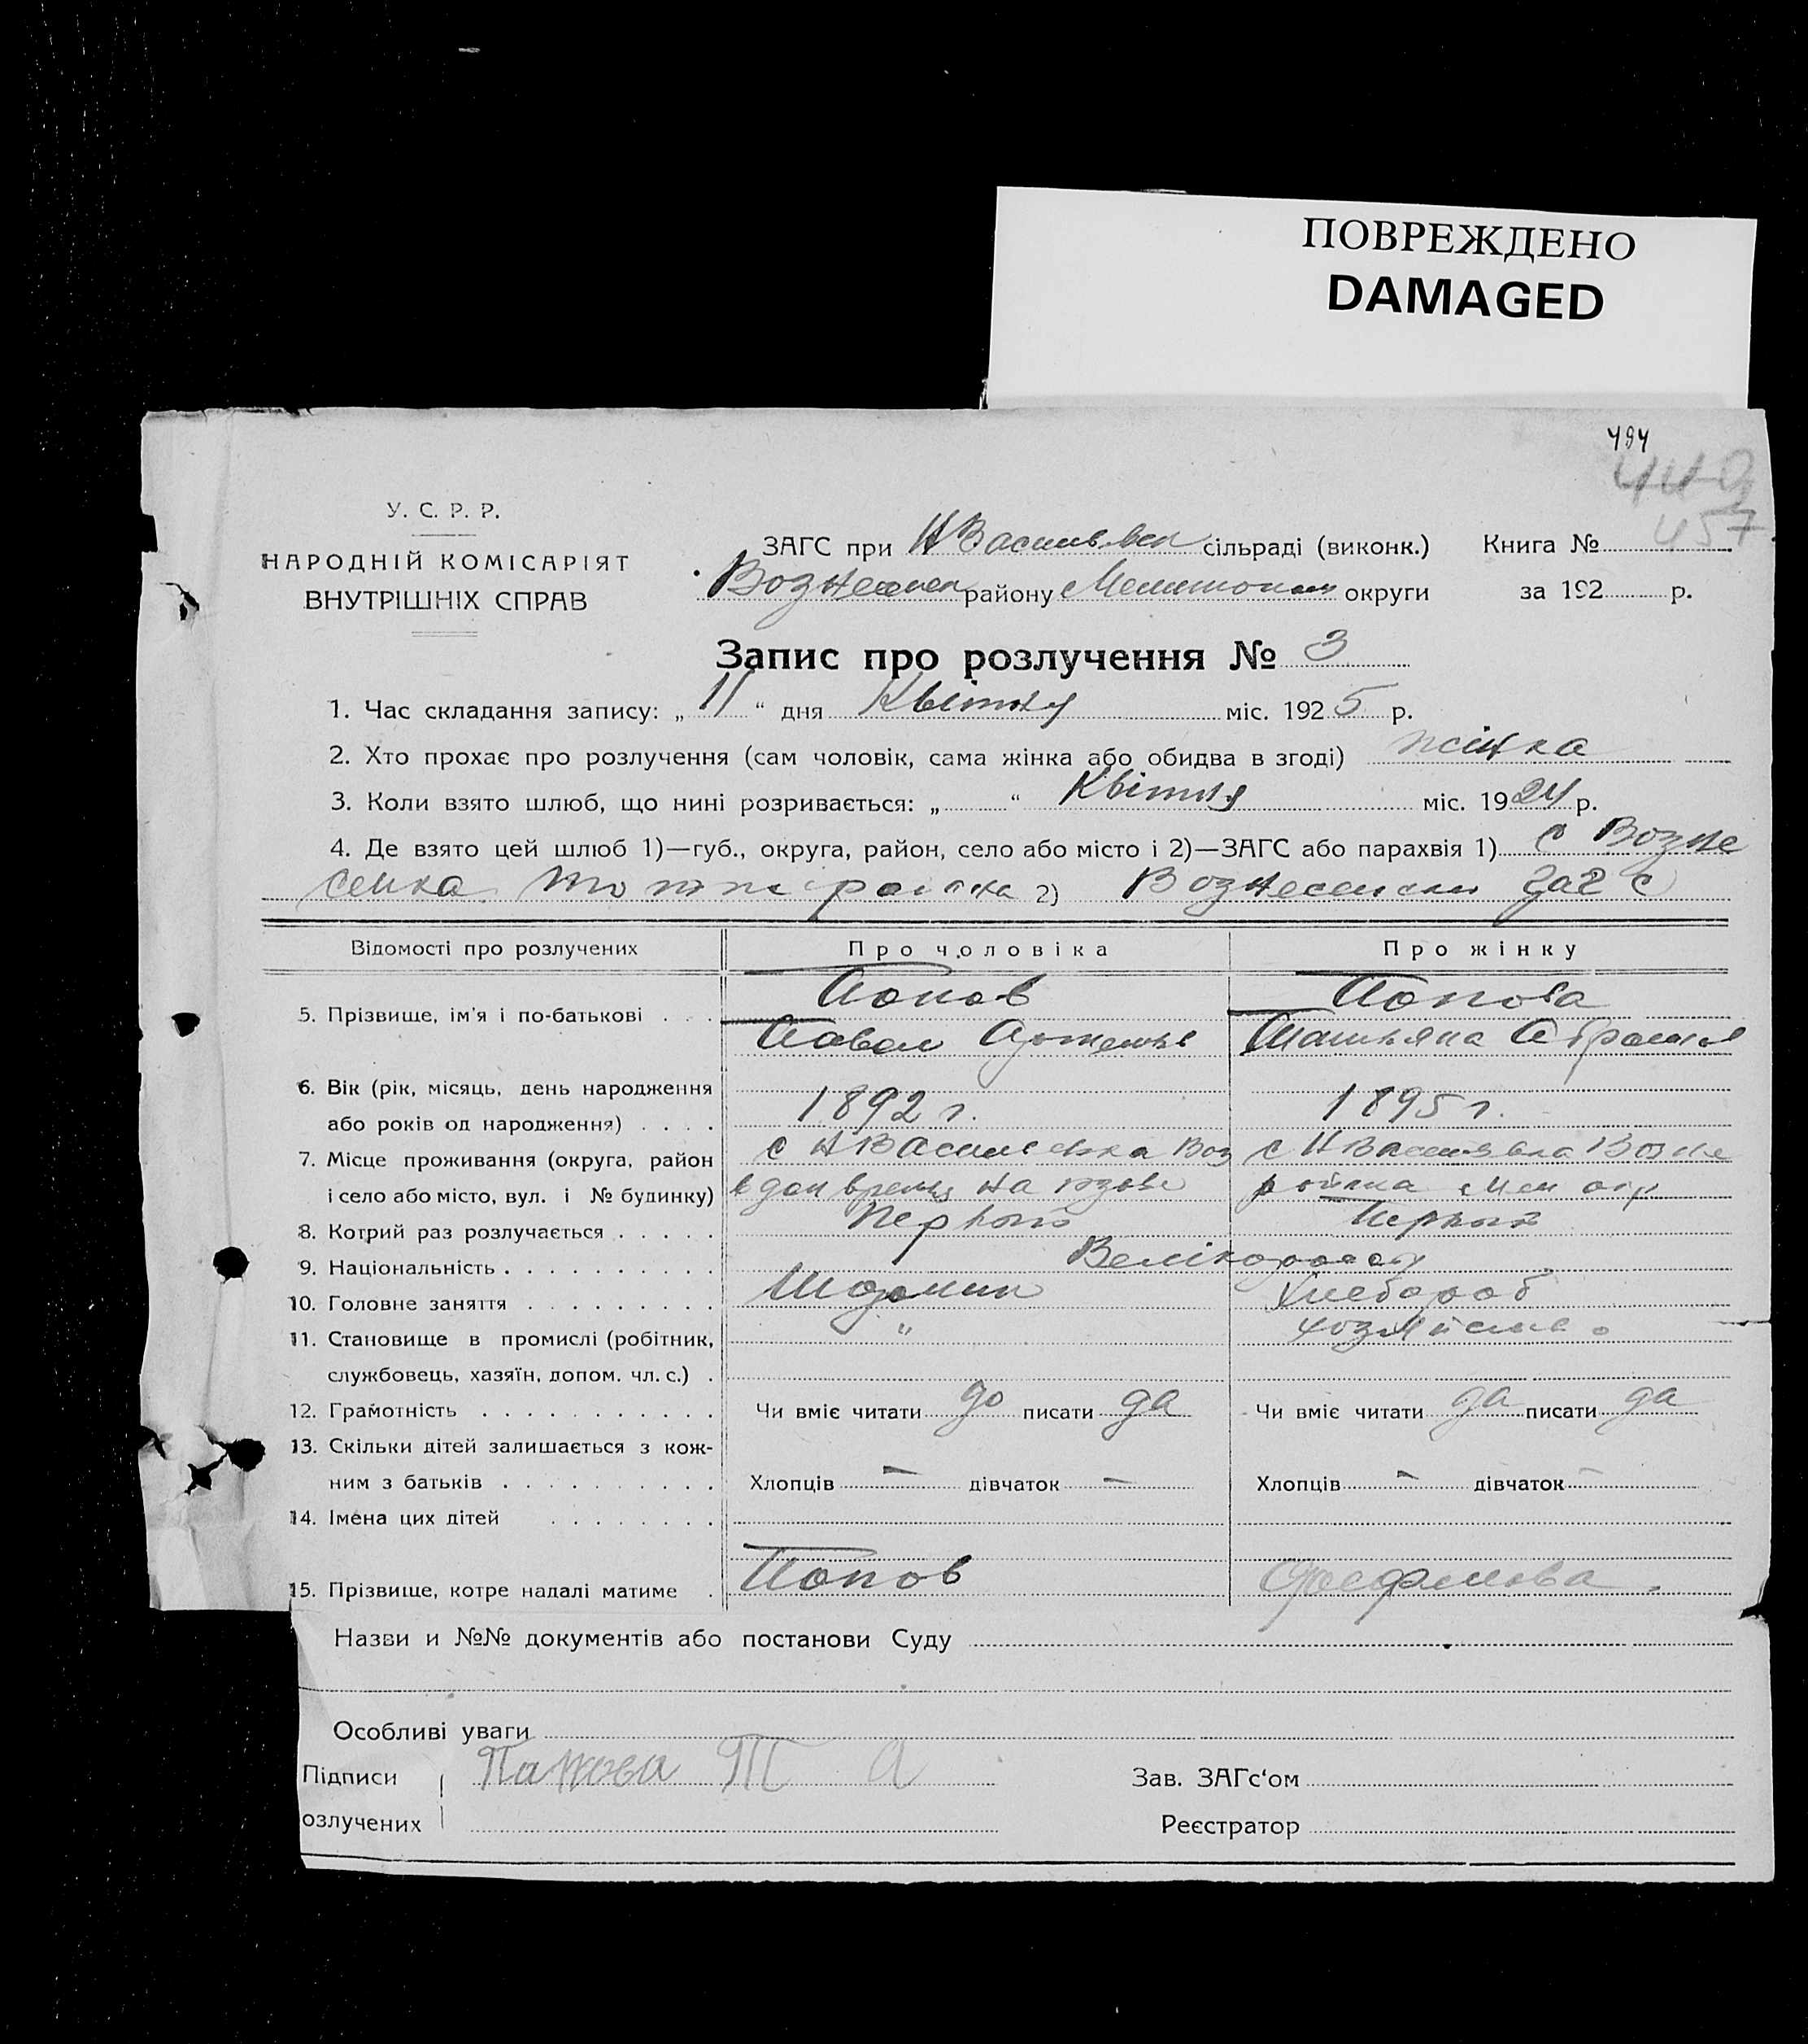 ПОВРЕЖДЕНО
DAMAGED
494
449
457
У. С. Р. Р.
НАРОДНІЙ КОМІСАРІЯТ
ВНУТРІШНІХ СПРАВ
ЗАГС при НВасильевск сільраді (виконк.) Книга №
Вознесенск району Мелитопол округи за 192 р.
Запис про розлучення № 3
1. Час складання запису: „ 11 “ дня Квітня міс. 1925 р.
2. Хто прохає про розлучення (сам чоловік, сама жінка або обидва в згоді) жінка
3. Коли взято шлюб, що нині розривається: „ “ Квітня міс. 1924 р.
4. Де взято цей шлюб 1)—губ., округа, район, село або місто і 2)—ЗАГС або парахвія 1) с Возне
сенка того же района 2) Вознесенски Загс
Відомості про розлучених Про чоловіка Про жінку
5. Прізвище, ім'я і по-батькові Попов Попова
Павел Татьяна
6. Вік (рік, місяць, день народження
або років од народження) 1892 г. 1895 г.
7. Місце проживання (округа, район с НВасильевка Воз с НВасильевка Возне
і село або місто, вул. і № будинку) в дан время на района Мел окр
8. Котрий раз розлучається Первый Первый
9. Національність Велікоросы
10. Головне заняття Хлебороб
11. Становище в промислі (робітник, "
службовець, хазяїн, допом. чл. с.)
12. Грамотність Чи вміє читати да писати да Чи вміє читати да писати да
13. Скільки дітей залишається з кож-
ним з батьків Хлопців — дівчаток — Хлопців — дівчаток —
14. Імена цих дітей
15. Прізвище, котре надалі матиме Попов
Назви и №№ документів або постанови Суду
Особливі уваги
Підписи Попова Т А Зав. ЗАГс‘ом
озлучених Реєстратор